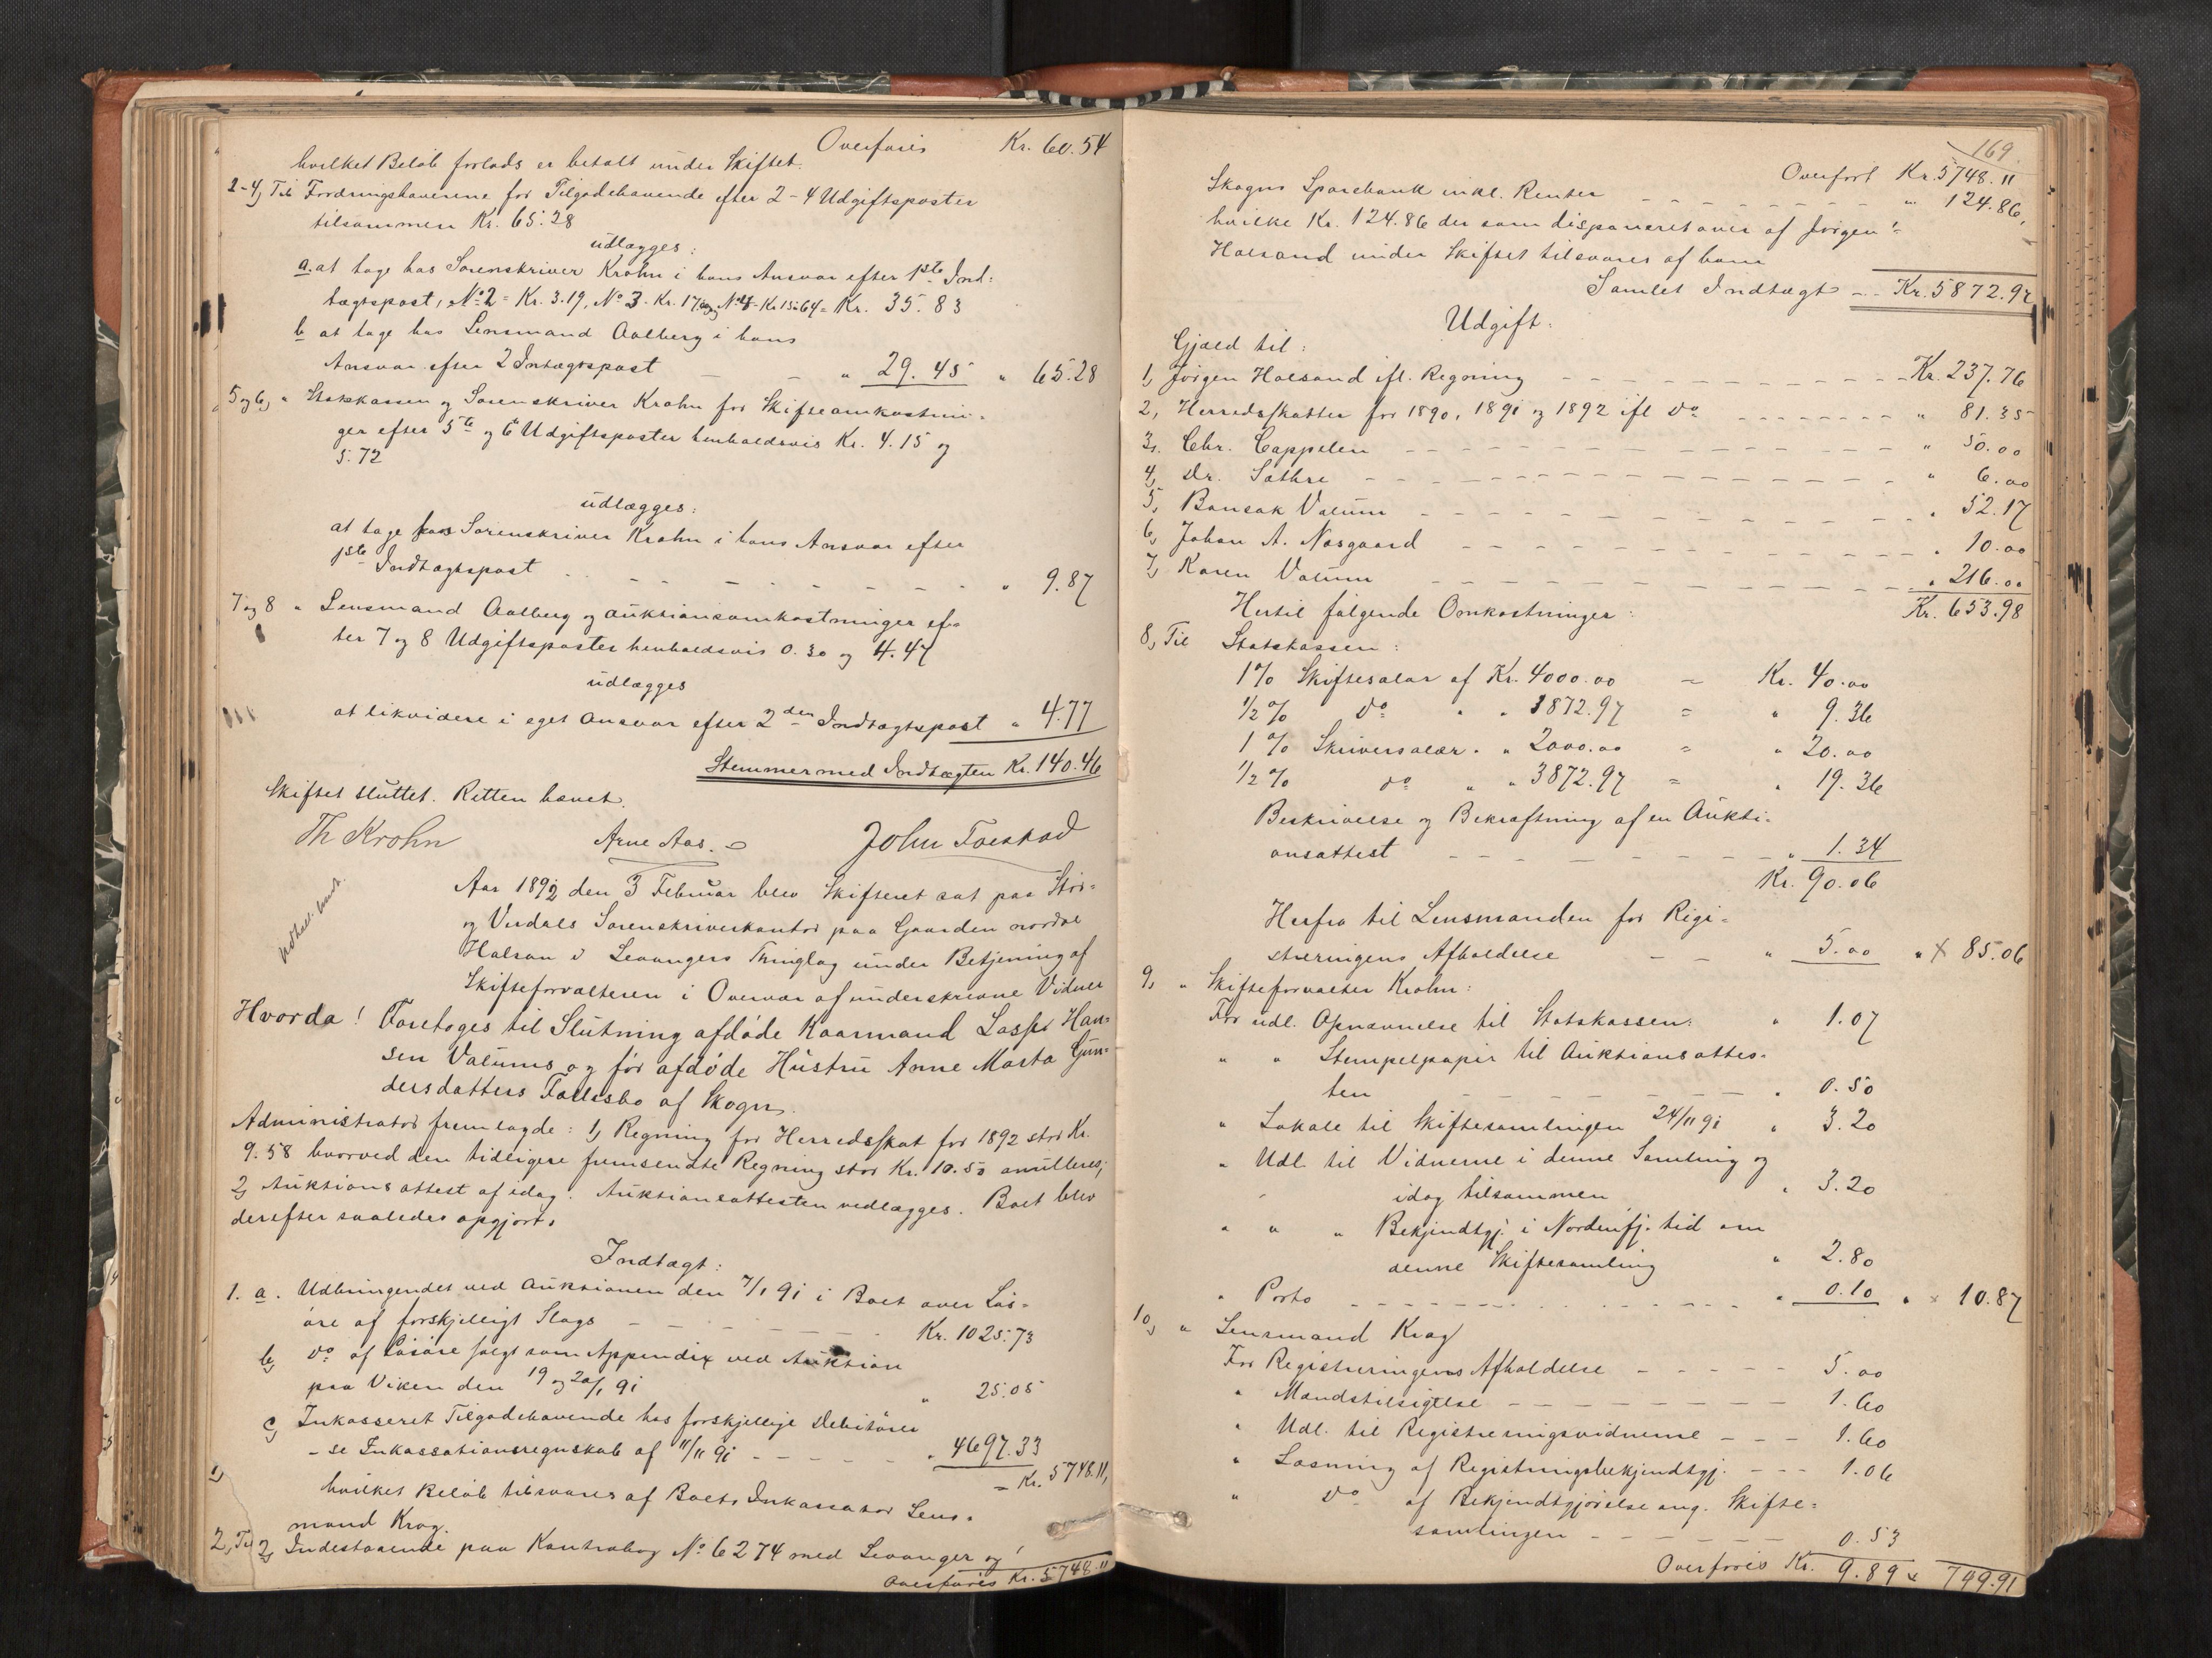 Overføris Kr. 60.54
hvilket Beløb forlods er betalt under Skiftet.
2-4, Til Fordringshaverne for Tilgodehavende efter 2-4 Udgiftsposter
tilsammen Kr. 65.28
udlægges:
a. at tage hos Sorenskriver Krohn i hans Ansvar efter 1ste Ind-
tægtspost, No 2 = Kr. 3.19, No 3 - Kr. 17.00 og No 4 - Kr 15.64 = Kr. 35.83
b at tage hos Lensmand Aalberg i hans
Ansvar efter 2 Indtægtspost — — " 29.45 " 65.28
5 og 6, " Statskassen og Sorenskriver Krohn for Skifteomkostnin-
ger efter 5te og 6te Udgiftsposter henholdsvis Kr. 4.15 og
5.72
udlægges:
at tage hos Sorenskriver Krohn i hans Ansvar efter
1ste Indtægtspost - - - - - - - - " 9.87
7 og 8 " Lensmand Aalberg og Auktionsomkostninger ef-
ter 7 og 8 Udgiftsposter henholdsvis 0.30 og 4.47
udlægges
at likvidere i eget Ansvar efter 2den Indtægtspost " 4.77
Stemmer med Indtægten Kr. 140.46
Skiftet sluttet. Retten hævet.
Th Krohn Arne Aas. John Foeskad
Aar 1892 den 3 Februar blev Skifteret sat paa Stør-
og Verdals Sorenskriverkontor paa Gaarden nordre
Halsan i Levangers Thinglag under Betjening af
Skifteforvalteren i Overvær af underskrevne Vidner
Hvorda! Foretoges til Slutning afdøde Kaarmand Lasse Han-
sen Valums og før afdøde Hustru Anne Marta Gun-
dersdatters Fællesbo af Skogn.
Administrator fremlagde: 1, Regning for Herredsskat for 1892 stor Kr.
9.58 hvorved den tidligere fremsendte Regning stor Kr. 10.50 anulleres;
2, Auktionsattest af idag. Auktionsattesten vedlægges. Boet blev
derefter saaledes opgjort.
Indtægt:
1. a. Udbringendet ved Auktionen den 7/1 91 i Boet over Løs-
øre af forskjelligt Slags - - - - - - - Kr. 1025.73
b, do af Løsøre solgt som Appendix ved Auktion
paa Viken den 19 og 20/1 91 " 25.05
c, Inkasseret Tilgodehavende hos forskjellige Debitorer
- se Inkassationsregnskab af 11/11 91 - - - - - " 4697.33
= Kr. 5748.11,
hvilket Beløb tilsvares af Boets Inkassator Lens-
mand Krog.
2, Indestaaende paa Kontrabog No 6274 med Levanger og
Overføris Kr. 5748.11
169.
Overført Kr. 5748.11
Skogns Sparebank inkl. Renter - - - - - - - - " 124.86,
hvilke Kr. 124.86 der som disponeret over af Jørgen
Halsand under Skiftet tilsvares af ham
Samlet Indtægt - - Kr. 5872.97
Udgift:
Gjæld til:
1, Jørgen Halsand ifl. Regning - - - - - - - - - - - - - Kr. 237.76
2, Herredsskatter for 1890, 1891 og 1892 ifl do - - - - - - - - " 81.35
3, Chr. Cappelen - - - - - - - - - - - - - - - " 50.00
4, Dr. Sæthre - - - - - - - - - - - - - - - - - " 6.00
5, Bonsak Valum - - - - - - - - - - - - - - " 52.17
6, Johan A. Næsgaard - - - - - - - - - - - - - " 10.00
7, Karen Valum - - - - - - - - - - - - - - " 216.00
Hertil følgende Omkostninger: Kr. 653.98
8, Til Statskassen:
1% Skiftesalær af Kr. 4000.00 = Kr. 40.00
1/2% do " " 1872.97 = " 9.36
1% Skriversalær " " 2000.00 = " 20.00
1/2% do " " 3872.97 = " 19.36
Beskrivelse og Bekræftning af en Aukti-
onsattest - - - - - - - - " 1.34
Kr. 90.06
Herfra til Lensmanden for Regi-
streringens Afholdelse — — " 5.00 " × 85.06
9, " Skifteforvalter Krohn:
For udl. Opnævnelse til Statskassen: " 1.07
" " Stempelpapir til Auktionsattes-
ten — — — — — — " 0.50
" Lokale til Skiftesamlingen 24/11 91 " 3.20
" Udl. til Vidnerne i denne Samling og
idag tilsammen " 3.20
" " " Bekjendtgj. i Nordenfj. tid om
denne Skiftesamling " 2.80
" Porto - - - - - - - - - - - - " 0.10 " × 10.87
10, " Lensmand Krog
For Registreringens Afholdelse - - - - - 5.00
" Mandstilsigelse - - - - - - - - - 1.60
" Udl. til Registreringsvidnerne - - - 1.60
" Læsning af Registringsbekjendtgj. - - - 1.06
" do af Bekjendtgjørelse ang. Skifte-
samlingen - - - - - - 0.53
Overføris Kr. 9.89 × 749.91